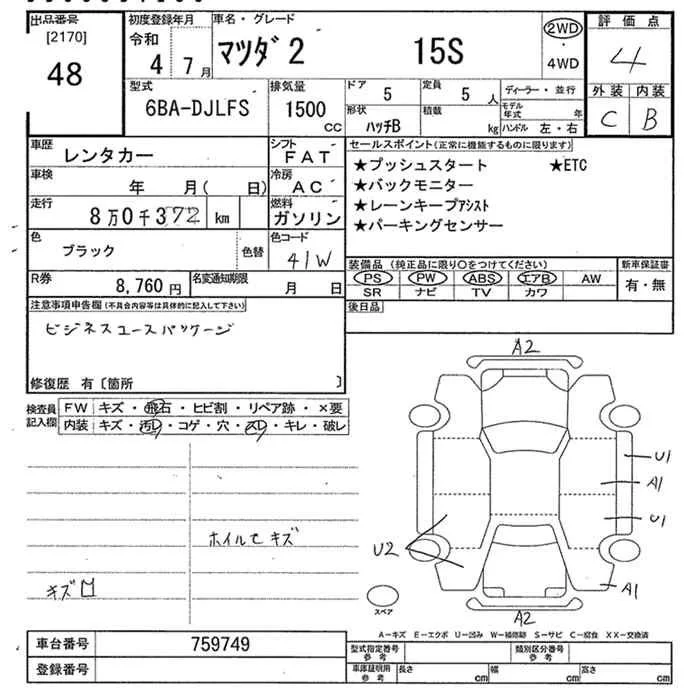 出品番号
[2170]
48
初度登録年月
令和
4 7月
車名・グレード
マツダ2 15S
2WD
・
4WD
評価点
4
外装 内装
C B
型式
6BA-DJLFS
排気量
1500
CC
ドア
5
定員
5 人
形状
ハッチB
積載
kg
ディーラー・並行
モデル年式 年
ハンドル 左・右
車歴
レンタカー
シフト
FAT
車検
年 月( 日)
冷房
AC
走行
8万0千372 km
燃料
ガソリン
色
ブラック
色替
色コード
41W
R券
8,760円
名変通知期限
月 日
セールスポイント(正常に機能するものに限ります)
★プッシュスタート ★ETC
★バックモニター
★レーンキープアシスト
★パーキングセンサー
装備品(純正品に限り○をつけてください)
PS PW ABS エアB AW
SR ナビ TV カワ
新車保証書
有・無
後日品
注意事項申告欄(不具合内容等は具体的に記入して下さい)
ビジネスユースパッケージ
修復歴 有〔箇所 〕
検査員
記入欄
FW キズ・飛石・ヒビ割・リペア跡・×要
内装 キズ・汚レ・コゲ・穴・スレ・キレ・破レ
ホイルセキズ
キズ
A2
U1
A1
U1
U2
A1
A2
スペア
A-キズ E-エクボ U-凹み W-補修跡 S-サビ C-腐食 XX-交換済
車台番号 759749
登録番号
型式指定番号
参考
類別区分番号
参考
車庫証明用
参考
長さ cm 幅 cm 高さ cm